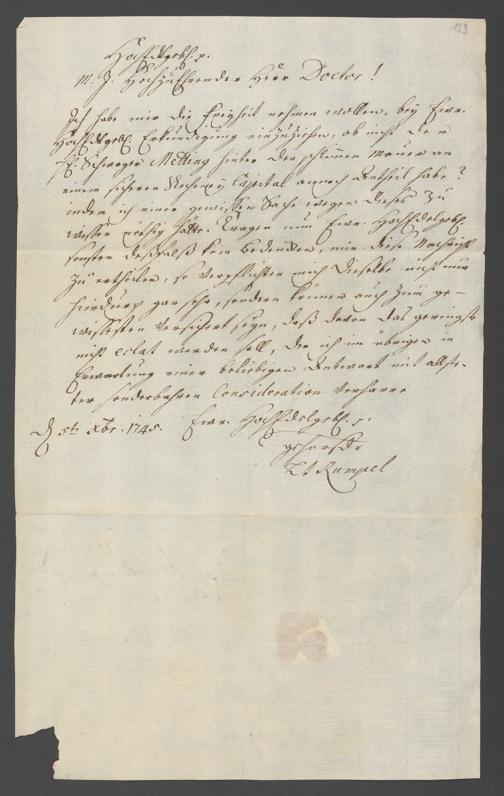 139
HochEdelgeb. p.
m. J. HochzuEhrender Herr Doctor!
Ich habe mir die Freyheit nehmen wollen, bey Ewr.
HochEdelgeb. Erkundigung einzuziehen, ob nicht der
H. Schwager Melling hinter der schlimen Mauer an
einem sichern Capital annoch Antheil habe?
indem ich einer gewissen Sache wegen dieses zu
wissen nöthig hätte. Tragen nun Ewr. HochEdelgeb.
sonsten deßfalß kein bedencken, mir diese Nachricht
zu ertheilen, so verpflichten mich Dieselbe nicht nur
hiedurch gar sehr, sondern können auch zum ge-
wissesten versichert seyn, daß davon das geringste
nicht eclat werden soll, der ich im übrigen in
Erwartung einer beliebigen Antwort mit allste-
ter sonderbahren Consideration verharre
d. 5ten Xbr. 1745. Ewr. HochEdelgeb. p.
gehorsste
Rumpel